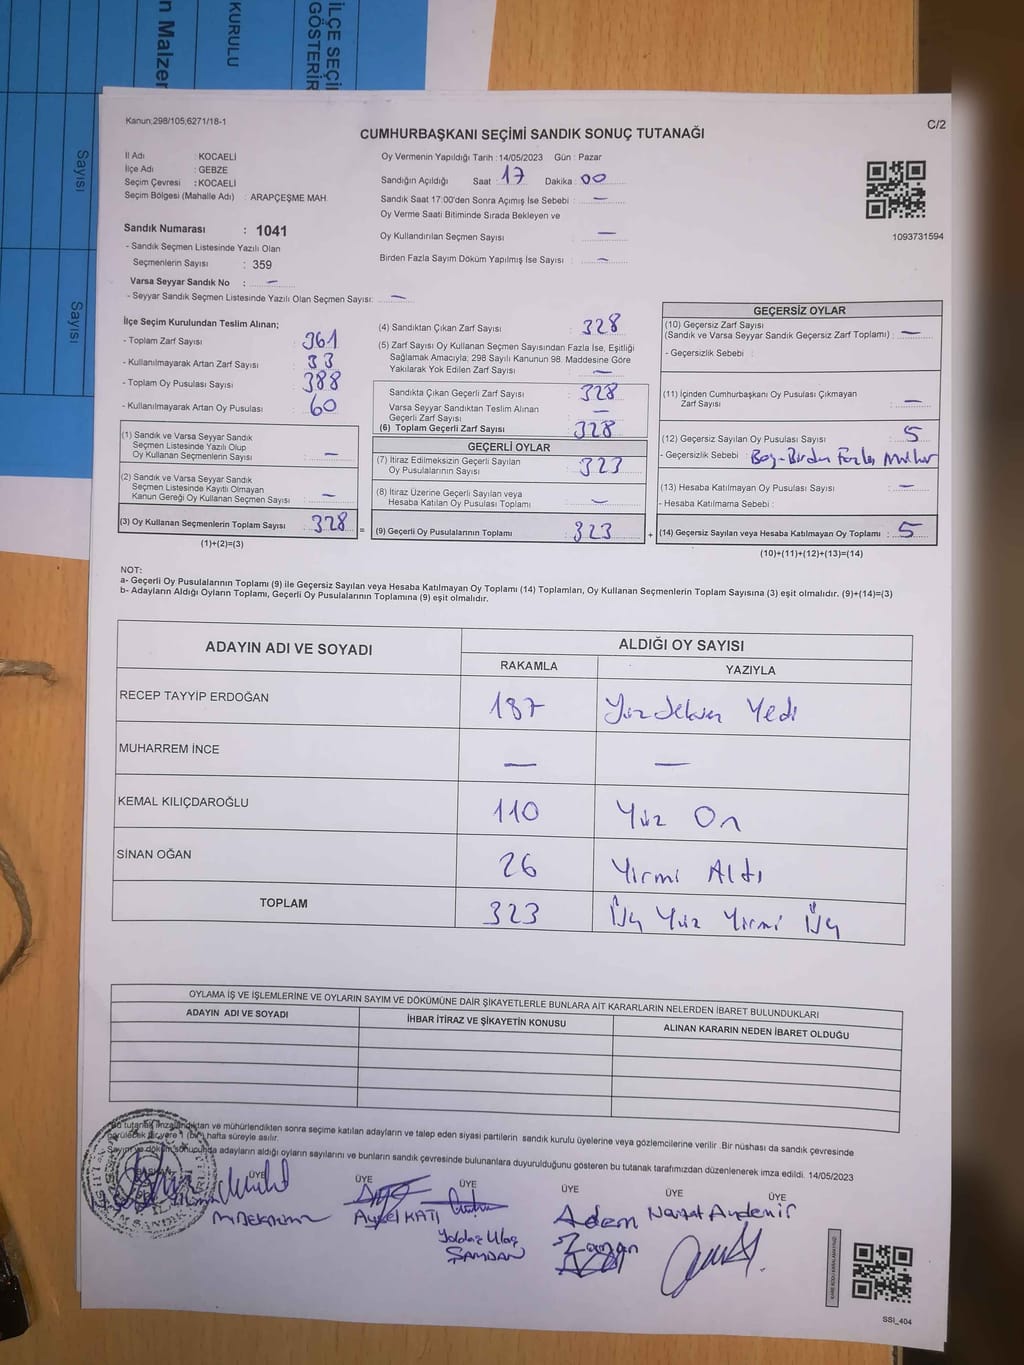 İLÇE SEÇİ
GÖSTERİR
KURULU
n Malzer
Sayısı
Sayısı
Kanun;298/105;6271/18-1
C/2
CUMHURBAŞKANI SEÇİMİ SANDIK SONUÇ TUTANAĞI
İl Adı : KOCAELİ
İlçe Adı : GEBZE
Seçim Çevresi : KOCAELİ
Seçim Bölgesi (Mahalle Adı) : ARAPÇEŞME MAH.
Sandık Numarası : 1041
- Sandık Seçmen Listesinde Yazılı Olan
Seçmenlerin Sayısı : 359
Varsa Seyyar Sandık No : —
- Seyyar Sandık Seçmen Listesinde Yazılı Olan Seçmen Sayısı: —
Oy Vermenin Yapıldığı Tarih : 14/05/2023 Gün : Pazar
Sandığın Açıldığı Saat : 17 Dakika : 00
Sandık Saat 17:00'den Sonra Açımış İse Sebebi : —
Oy Verme Saati Bitiminde Sırada Bekleyen ve
Oy Kullandırılan Seçmen Sayısı : —
Birden Fazla Sayım Döküm Yapılmış İse Sayısı : —
1093731594
İlçe Seçim Kurulundan Teslim Alınan;
- Toplam Zarf Sayısı : 361
- Kullanılmayarak Artan Zarf Sayısı : 33
- Toplam Oy Pusulası Sayısı : 388
- Kullanılmayarak Artan Oy Pusulası : 60
(1) Sandık ve Varsa Seyyar Sandık
Seçmen Listesinde Yazılı Olup
Oy Kullanan Seçmenlerin Sayısı : —
(2) Sandık ve Varsa Seyyar Sandık
Seçmen Listesinde Kayıtlı Olmayan
Kanun Gereği Oy Kullanan Seçmen Sayısı : —
(3) Oy Kullanan Seçmenlerin Toplam Sayısı : 328 =
(1)+(2)=(3)
(4) Sandıktan Çıkan Zarf Sayısı : 328
(5) Zarf Sayısı Oy Kullanan Seçmen Sayısından Fazla İse, Eşitliği
Sağlamak Amacıyla; 298 Sayılı Kanunun 98. Maddesine Göre
Yakılarak Yok Edilen Zarf Sayısı : —
Sandıkta Çıkan Geçerli Zarf Sayısı : 328
Varsa Seyyar Sandıktan Teslim Alınan
Geçerli Zarf Sayısı : —
(6) Toplam Geçerli Zarf Sayısı : 328
GEÇERLİ OYLAR
(7) İtiraz Edilmeksizin Geçerli Sayılan
Oy Pusulalarının Sayısı : 323
(8) İtiraz Üzerine Geçerli Sayılan veya
Hesaba Katılan Oy Pusulaları Toplamı : —
(9) Geçerli Oy Pusulalarının Toplamı : 323 +
GEÇERSİZ OYLAR
(10) Geçersiz Zarf Sayısı
(Sandık ve Varsa Seyyar Sandık Geçersiz Zarf Toplamı) : —
- Geçersizlik Sebebi :
(11) İçinden Cumhurbaşkanı Oy Pusulası Çıkmayan
Zarf Sayısı : —
(12) Geçersiz Sayılan Oy Pusulası Sayısı : 5
- Geçersizlik Sebebi : Boş-Birden Fazla Mühür
(13) Hesaba Katılmayan Oy Pusulası Sayısı : —
- Hesaba Katılmama Sebebi :
(14) Geçersiz Sayılan veya Hesaba Katılmayan Oy Toplamı : 5
(10)+(11)+(12)+(13)=(14)
NOT:
a- Geçerli Oy Pusulalarının Toplamı (9) ile Geçersiz Sayılan veya Hesaba Katılmayan Oy Toplamı (14) Toplamları, Oy Kullanan Seçmenlerin Toplam Sayısına (3) eşit olmalıdır. (9)+(14)=(3)
b- Adayların Aldığı Oyların Toplamı, Geçerli Oy Pusulalarının Toplamına (9) eşit olmalıdır.
ADAYIN ADI VE SOYADI
ALDIĞI OY SAYISI
RAKAMLA YAZIYLA
RECEP TAYYİP ERDOĞAN 187 Yüzseksen Yedi
MUHARREM İNCE — —
KEMAL KILIÇDAROĞLU 110 Yüz On
SİNAN OĞAN 26 Yirmi Altı
TOPLAM 323 Üç Yüz Yirmi Üç
OYLAMA İŞ VE İŞLEMLERİNE VE OYLARIN SAYIM VE DÖKÜMÜNE DAİR ŞİKAYETLERLE BUNLARA AİT KARARLARIN NELERDEN İBARET BULUNDUKLARI
ADAYIN ADI VE SOYADI İHBAR İTİRAZ VE ŞİKAYETİN KONUSU ALINAN KARARIN NEDEN İBARET OLDUĞU
Bu tutanak imzalandıktan ve mühürlendikten sonra seçime katılan adayların ve talep eden siyasi partilerin sandık kurulu üyelerine veya gözlemcilerine verilir. Bir nüshası da sandık çevresinde
görülebilecek bir yere 1 (bir) hafta süreyle asılır.
Sayım ve döküm sonucunda adayların aldığı oyların sayılarını ve bunların sandık çevresinde bulunanlara duyurulduğunu gösteren bu tutanak tarafımızdan düzenlenerek imza edildi. 14/05/2023
BAŞKAN ÜYE ÜYE ÜYE ÜYE ÜYE ÜYE
Aysel KATI
Yoldaş Ulaş
ŞAMDAN
Adem
Zaman
Nevzat Aydenir
SSI_404